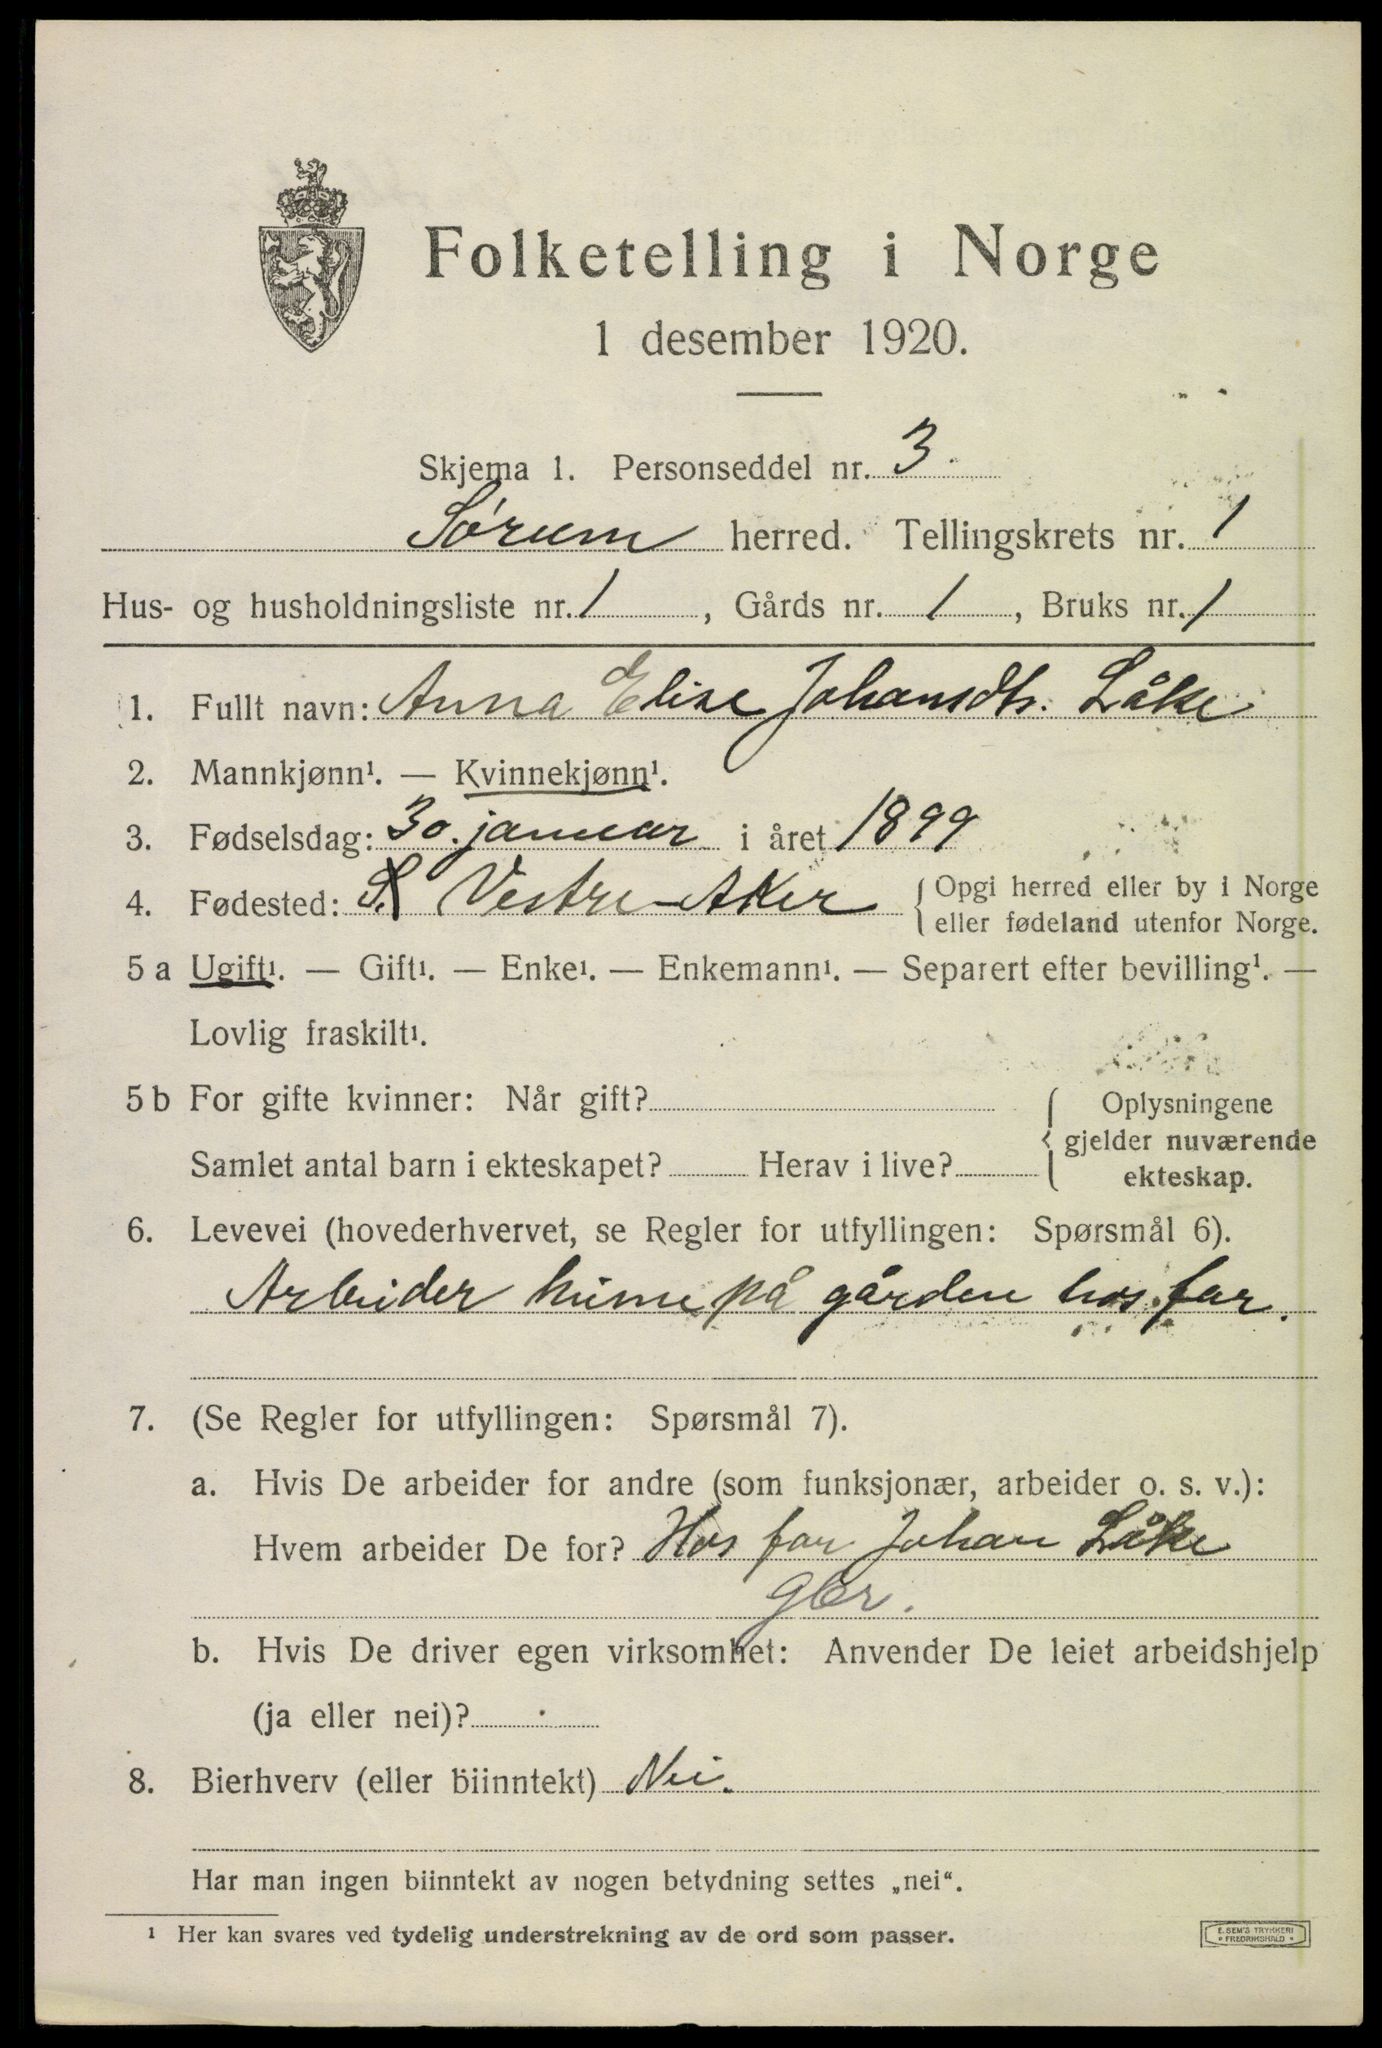 Folketelling i Norge
1 desember 1920.
Skjema 1. Personseddel nr. 3.
Sørum herred. Tellingskrets nr. 1
Hus- og husholdningsliste nr. 1, Gårds nr. 1, Bruks nr. 1
1. Fullt navn: Anna Elise Johansdtr. Låke
2. Mannkjønn¹. — Kvinnekjønn¹.
3. Fødselsdag: 30. januar i året 1899
4. Fødested: Vestre-Aker { Opgi herred eller by i Norge
eller fødeland utenfor Norge.
5 a Ugift¹. — Gift¹. — Enke¹. — Enkemann¹. — Separert efter bevilling¹. —
Lovlig fraskilt¹.
5 b For gifte kvinner: Når gift?
Samlet antal barn i ekteskapet? Herav i live?
{ Oplysningene
gjelder nuværende
ekteskap.
6. Levevei (hovederhvervet, se Regler for utfyllingen: Spørsmål 6).
Arbeider hime på gården hos far.
7. (Se Regler for utfyllingen: Spørsmål 7).
a. Hvis De arbeider for andre (som funksjonær, arbeider o. s. v.):
Hvem arbeider De for? Hos far Johan Låke
Gbr.
b. Hvis De driver egen virksomhet: Anvender De leiet arbeidshjelp
(ja eller nei)?
8. Bierhverv (eller biinntekt) Nei.
Har man ingen biinntekt av nogen betydning settes „nei“.
¹ Her kan svares ved tydelig understrekning av de ord som passer.
E. SEM'S TRYKKERI
• FREDRIKSHALD •